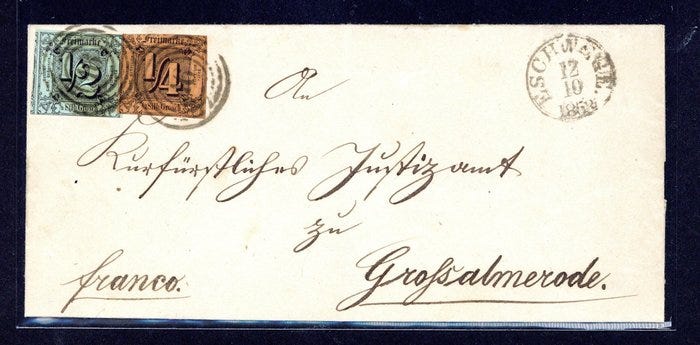 Freimarke Freimarke
1/2 1/4
ESCHWEGE.
12
10
An
Kurfürstliches Justizamt
zu
franco. Großalmerode.